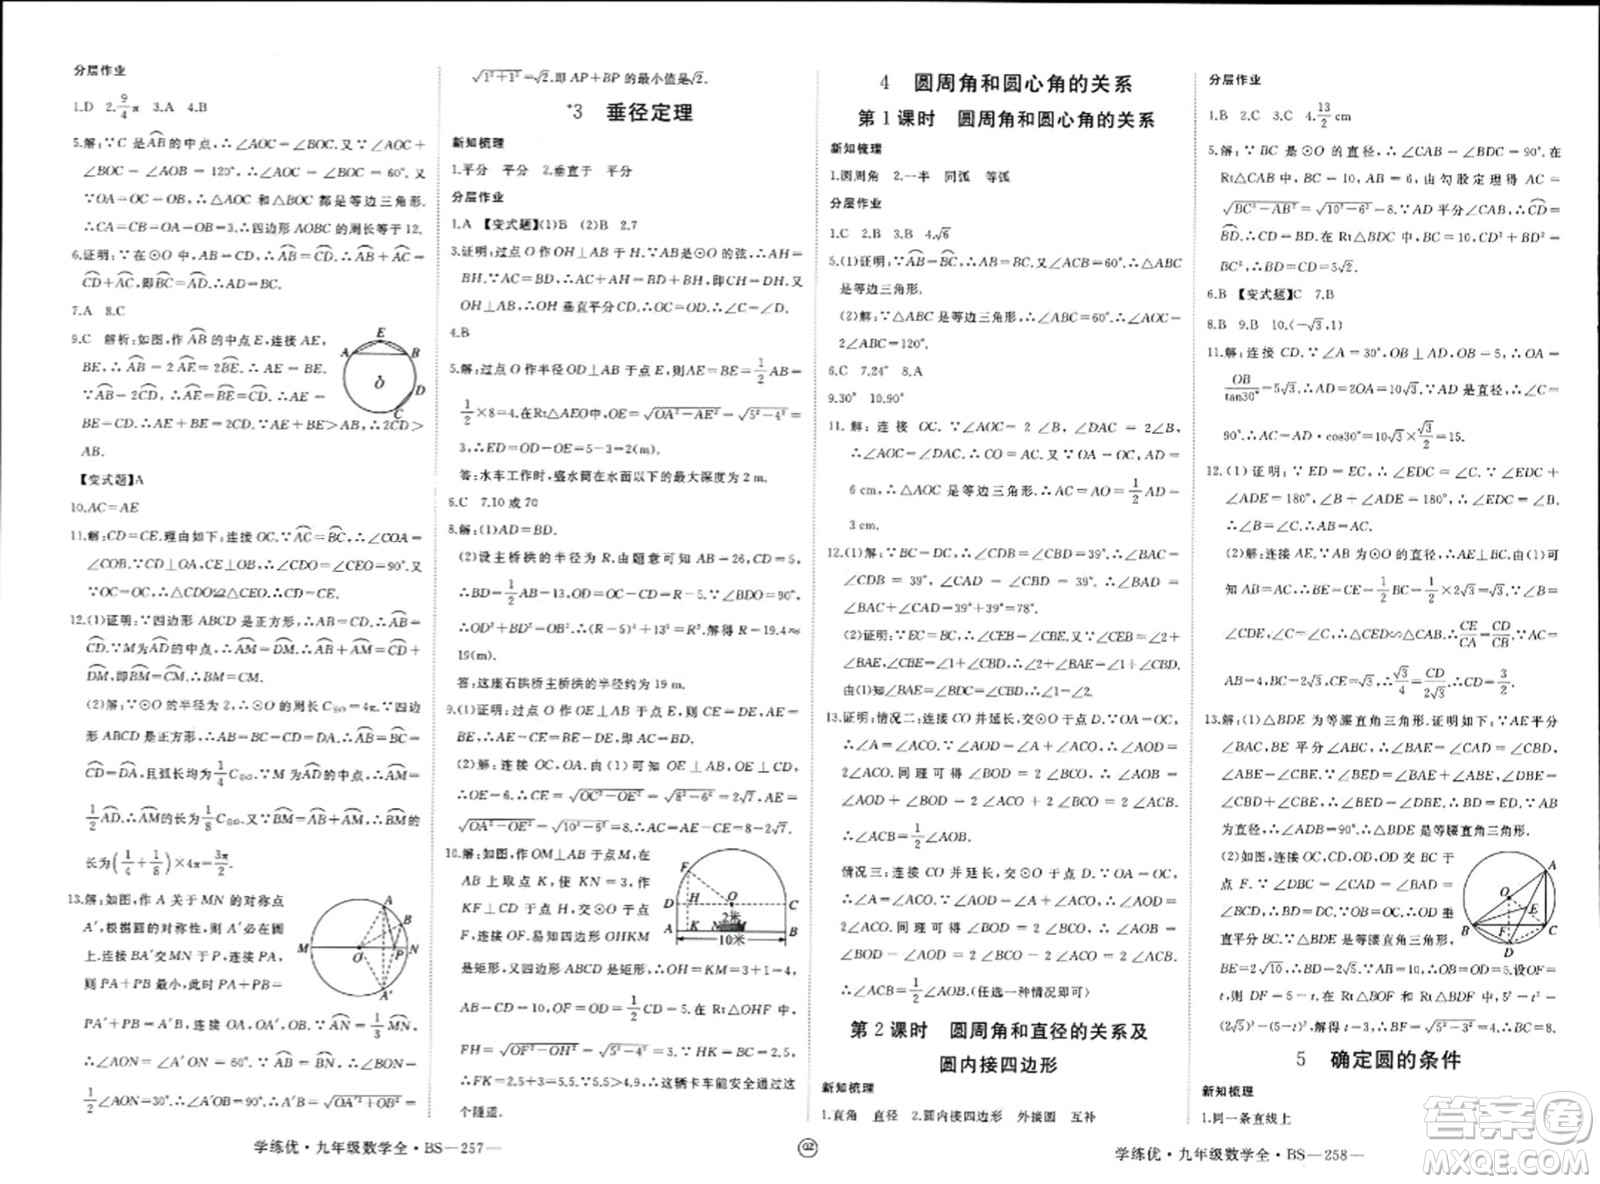 分层作业
1.D 2.9/4π 3.A 4.B
5.解:∵C 是⌒AB的中点,∴∠AOC=∠BOC.又∵∠AOC+
∠BOC=∠AOB=120°,∴∠AOC=∠BOC=60°.又∵
∵OA=OC=OB,∴△AOC 和△BOC 都是等边三角形.
∴CA=CB=OA=OB.∴四边形 AOBC 的周长等于 12.
6.证明:∵在⊙O 中,AB=CD,∴⌒AB=⌒CD.∴⌒AB+⌒AC=
⌒CD+⌒AC,即⌒BC=⌒AD.∴∠BOC=∠AOD.
7.A 8.C
9.C 解析:如图,作⌒AB的中点 E,连接 AE,
BE,∴⌒AB=2⌒AE=2⌒BE.∴AE=BE.
∵⌒AB=2⌒CD,∴⌒AE=⌒BE=⌒CD.∴AE=
BE=CD.∴AE+BE=2CD.∵AE+BE>AB,∴2CD>
AB.
【变式题】A
10.AC=AE
11.解:CD=CE.理由如下:连接 OC.∵⌒AC=⌒BC,∴∠COA=
∠COB.∵CD⊥OA,CE⊥OB,∴∠CDO=∠CEO=90°.
∵OC=OC,∴△CDO≌△CEO.∴CD=CE.
12.(1)证明:∵四边形 ABCD 是正方形,∴AB=CD.∴⌒AB=
⌒CD.∵M 为⌒AD的中点,∴⌒AM=⌒DM.∴⌒AB+⌒AM=⌒CD+
⌒DM,即⌒BM=⌒CM.∴BM=CM.
(2)解:∵⊙O 的半径为 2,∴⊙O 的周长 C⊙O=4π.∵四边
形 ABCD 是正方形,∴AB=BC=CD=DA.∴⌒AB=⌒BC=
⌒CD=⌒DA,且弧长均为1/4C⊙O.∵M 为⌒AD的中点,∴⌒AM=
1/2⌒AD.∴⌒AM=1/8C⊙O.又∵⌒BM=⌒AB+⌒AM,∴⌒BM的
长为(1/4+1/8)×4π=3π/2.
13.解:如图,作 A 关于 MN 的对称点
A′,根据圆的对称性,则 A′必在圆
上.连接 BA′交 MN 于 P,连接 PA,
则PA+PB 最小,此时 PA+PB=
PA′+PB=A′B.连接 OA,OA′,OB.∵⌒AN=1/3⌒MN,
∴∠AON=∠A′ON=60°.∵⌒AB=⌒BN,∴∠BON=
1/2∠AON=30°.∴∠A′OB=90°.∴A′B=√(OA′²+OB²)=
√(1²+1²)=√2.即 AP+BP 的最小值是√2.
*3 垂径定理
新知梳理
1.平分 平分 2.垂直于 平分
分层作业
1.A 【变式题】(1)B (2)B 2.7
3.证明:过点 O 作 OH⊥AB 于 H.∵AB 是⊙O 的弦,∴AH=
BH.∵AC=BD,∴AC+AH=BD+BH,即CH=DH.又∵
OH⊥AB,∴OH 垂直平分 CD.∴OC=OD.∴∠C=∠D.
4.B
5.解:过点 O 作半径 OD⊥AB 于 E,则AE=BE=1/2AB=
1/2×8=4.在 Rt△AEO 中,OE=√(OA²-AE²)=√(5²-4²)=
3,∴ED=OD-OE=5-3=2(m).
答:水车工作时,盛水筒在水面以下的最大深度为 2 m.
6.C 7.10 或 70
8.解:(1)AD=BD.
(2)设主桥拱的半径为 R,由题意可知 AB=26,CD=5,
∴BD=1/2AB=13,OD=OC-CD=R-5.∵∠BDO=90°,
∴OD²+BD²=OB².∴(R-5)²+13²=R².解得 R=19.4≈
19(m).
答:这座石拱桥主桥拱的半径约为 19 m.
9.(1)证明:过点 O 作 OE⊥AB 于点 E,则 CE=DE,AE=
BE.∴AE-CE=BE-DE,即 AC=BD.
(2)解:连接 OC,OA.由(1)可知 OE⊥AB 且 OE⊥CD,
∴OE=6.∴CE=√(OC²-OE²)=√(8²-6²)=2√7,AE=
√(OA²-OE²)=√(10²-6²)=8.∴AC=AE-CE=8-2√7.
10.解:如图,作 OM⊥AB 于点 M,在
AB上取点 K,使 KN=0.5,过 K 作
KF⊥CD 于 H,交⊙O 于点 F,
连接 OF.易知四边形 OHKM
是矩形,又四边形 ABCD 为矩形,∴OH=KM=3+1=4,
AB=CD=10,∴OF=OD=1/2CD=5.在 Rt△OHF 中,
FH=√(OF²-OH²)=√(5²-4²)=3.∵HK=BC=2.5,
∴FK=2.5+3=5.5>4.9.∴这辆卡车能安全通过这
个隧道.
4 圆周角和圆心角的关系
第 1 课时 圆周角和圆心角的关系
新知梳理
1.圆周角 2.一半 同弧 等弧
分层作业
1.C 2.B 3.B 4.√6
5.(1)证明:∵⌒AB=⌒BC,∴AB=BC.又∵∠ACB=60°,∴△ABC
是等边三角形.
(2)解:∵△ABC 是等边三角形,∴∠ABC=60°.∴∠AOC=
2∠ABC=120°.
6.C 7.24° 8.A
9.30° 10.90°
11.解:连接 OC.∵∠AOC=2∠B,∠DAC=2∠B,
∴∠AOC=∠DAC.∴CO=AC.又∵OA=OC=1/2AD=
6 cm,∴△AOC 是等边三角形.∴AC=AO=1/2AD=
3 cm.
12.(1)解:∵BC=DC,∴∠CDB=∠CBD=39°.∵∠CAB=
∠CDB=39°,∠CAD=∠CBD=39°,∴∠BAD=
∠BAC+∠CAD=39°+39°=78°.
(2)证明:∵EC=BC,∴∠CEB=∠CBE.∵∠CEB=∠2+
∠BAE,∠CBE=∠1+∠CBD,∴∠2+∠BAE=∠1+∠CBD.
由(1)知∠BAE=∠CBD,∴∠1=∠2.
13.证明:情况二:连接 CO 并延长,交⊙O 于点 D.∵OA=OC,
∴∠A=∠ACO.∵∠AOD=∠A+∠ACO,∴∠AOD=
2∠ACO.同理可得∠BOD=2∠BCO.∴∠AOB=
∠AOD+∠BOD=2∠ACO+2∠BCO=2∠ACB.
∴∠ACB=1/2∠AOB.
情况三:连接 CO 并延长,交⊙O 于点 D.∵OA=OC,
∴∠A=∠ACO.∵∠AOD=∠A+∠ACO,∴∠AOD=
2∠ACO.同理可得∠BOD=2∠BCO.∴∠AOB=
∠BOD-∠AOD=2∠BCO-2∠ACO=2∠ACB.
∴∠ACB=1/2∠AOB.(任选一种情况即可)
第 2 课时 圆周角和直径的关系及
圆内接四边形
新知梳理
1.直角 直径 2.圆内接四边形 外接圆 互补
分层作业
1.B 2.C 3.C 4.13/2 cm
5.解:∵BC 是⊙O 的直径,∴∠CAB=∠BDC=90°.在
Rt△CAB 中,BC=10,AB=6,由勾股定理得 AC=
√(BC²-AB²)=√(10²-6²)=8.∵AD平分∠CAB,∴⌒CD=
⌒BD.∴CD=BD.在 Rt△BDC 中,BC=10,CD²+BD²=
BC²,∴BD=CD=5√2.
6.B 【变式题】C 7.B
8.B 9.B 10.(-√3,1)
11.解:连接 CD.∵∠A=30°,OB⊥AD,OB=5,∴OA=
OB/tan30°=5√3.∴AD=2OA=10√3.∵AD是直径,∴∠ACD=
90°.∴AC=AD·cos30°=10√3×√3/2=15.
12.(1)证明:∵ED=EC,∴∠EDC=∠C.∵∠EDC+
∠ADE=180°,∠B+∠ADE=180°,∴∠EDC=∠B.
∴∠B=∠C.∴AB=AC.
(2)解:连接 AE.∵AB 为⊙O 的直径,∴AE⊥BC.由(1)可
知 AB=AC,∴BE=CE=1/2BC=1/2×2√3=√3.∵∠B=
∠CDE,∠C=∠C,∴△CED∽△CAB.∴CE/CA=CD/CB.∵
AB=4,BC=2√3,∴AC=4,CE=√3.∴√3/4=CD/2√3.∴CD=3/2.
13.解:(1)△BDE 为等腰直角三角形.证明如下:∵AE平分
∠BAC,BE 平分∠ABC,∴∠BAE=∠CAD=∠CBD,
∠ABE=∠EBC.∵∠BED=∠BAE+∠ABE,∠DBE=
∠CBD+∠EBC,∴∠BED=∠DBE.∴BD=ED.∵AB
为直径,∴∠ADB=90°.∴△BDE 是等腰直角三角形.
(2)如图,连接 OC,CD,OD,OD 交 BC 于
点 F.∵∠DBC=∠CAD=∠BAD=
∠BCD,∴BD=DC.∵OB=OC,∴OD垂
直平分 BC.∵△BDE 是等腰直角三角形,
BE=2√10,∴BD=2√5.∵AB=10,∴OB=OD=5.设OF=
t,则 DF=5-t.在 Rt△BOF 和 Rt△BDF 中,5²-t²=
(2√5)²-(5-t)²,解得 t=3.∴BF=√(5²-3²)=4.∴BC=8.
5 确定圆的条件
新知梳理
1.同一条直线上
学练优·九年级数学全·BS—257—
92
学练优·九年级数学全·BS—258—
答案卷
MXQE.COM